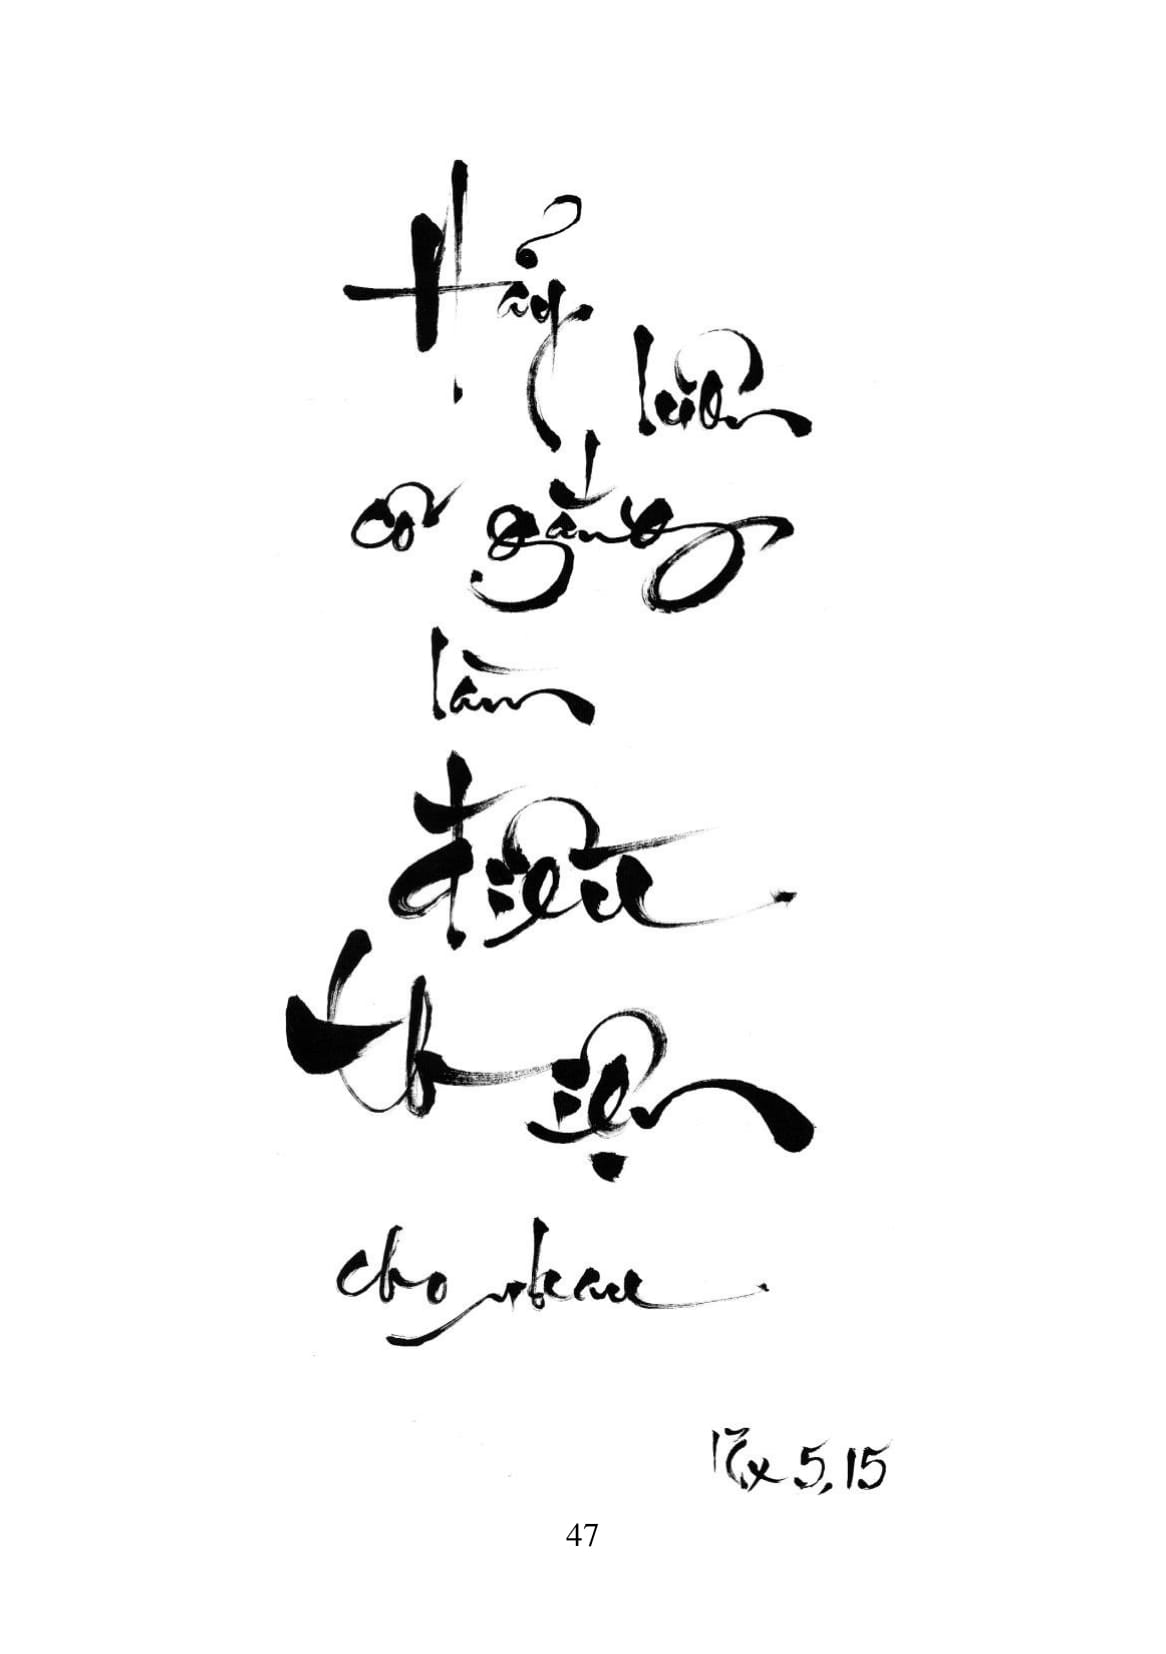 Hãy luôn
cố gắng
làm
điều
thiện
cho nhau
1Tx 5,15
47